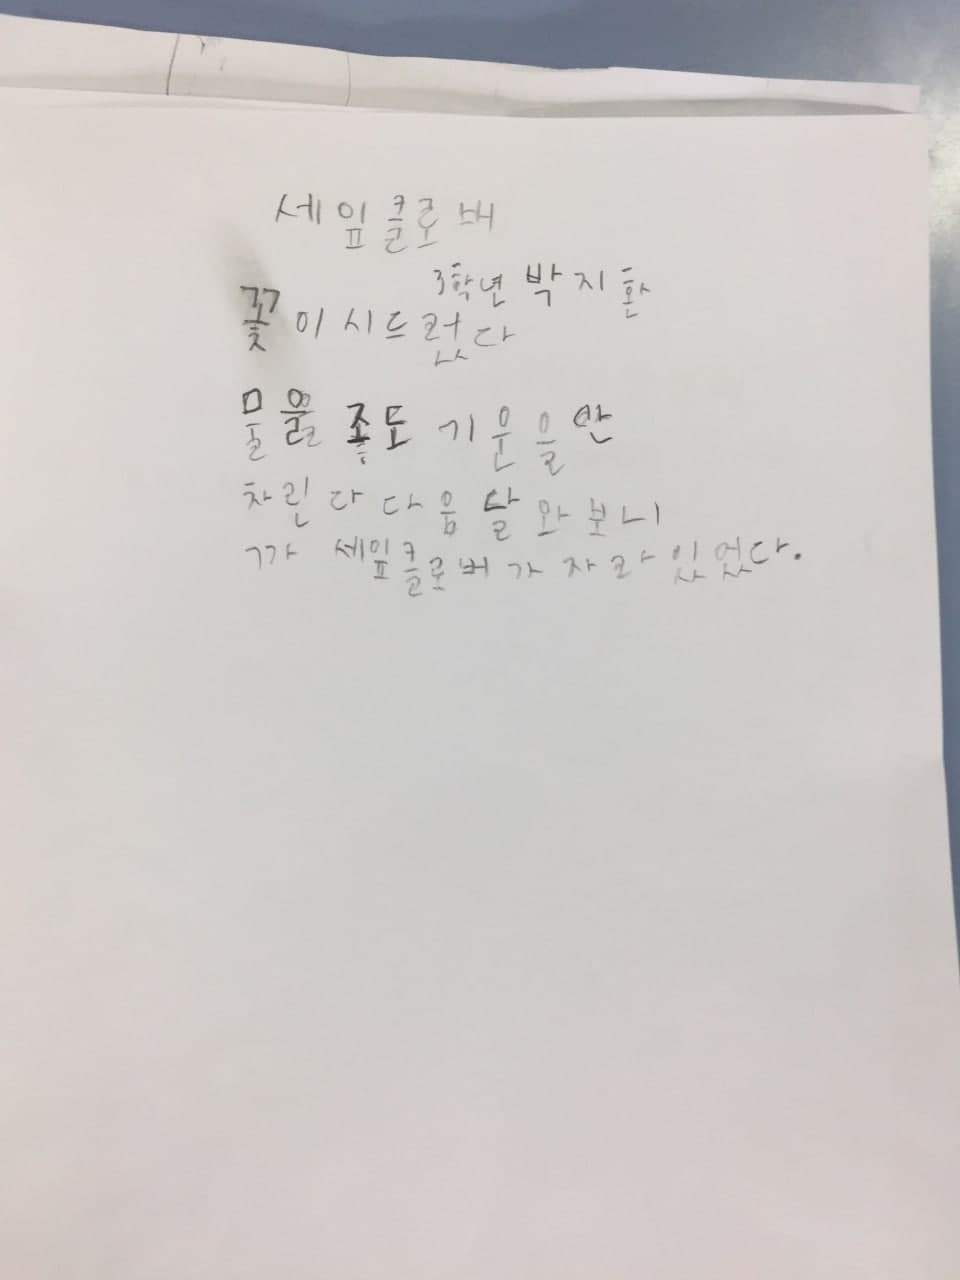 세잎클로버
3학년 박지환
꽃이시드렀다
물을좋도 기운을안
차린다 다음달와보니
까 세잎클로버가자라있었다.